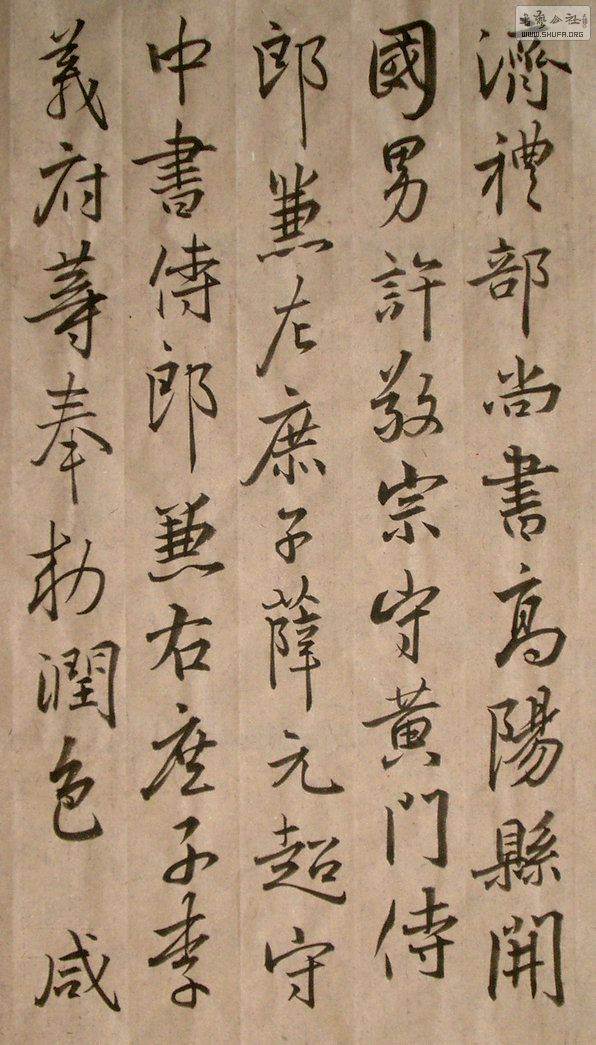 濟禮部尚書高陽縣開
國男許敬宗守黃門侍
郎兼左庶子薛元超守
中書侍郎兼右庶子李
義府等奉勅潤色 咸
WWW.SHUFA.ORG